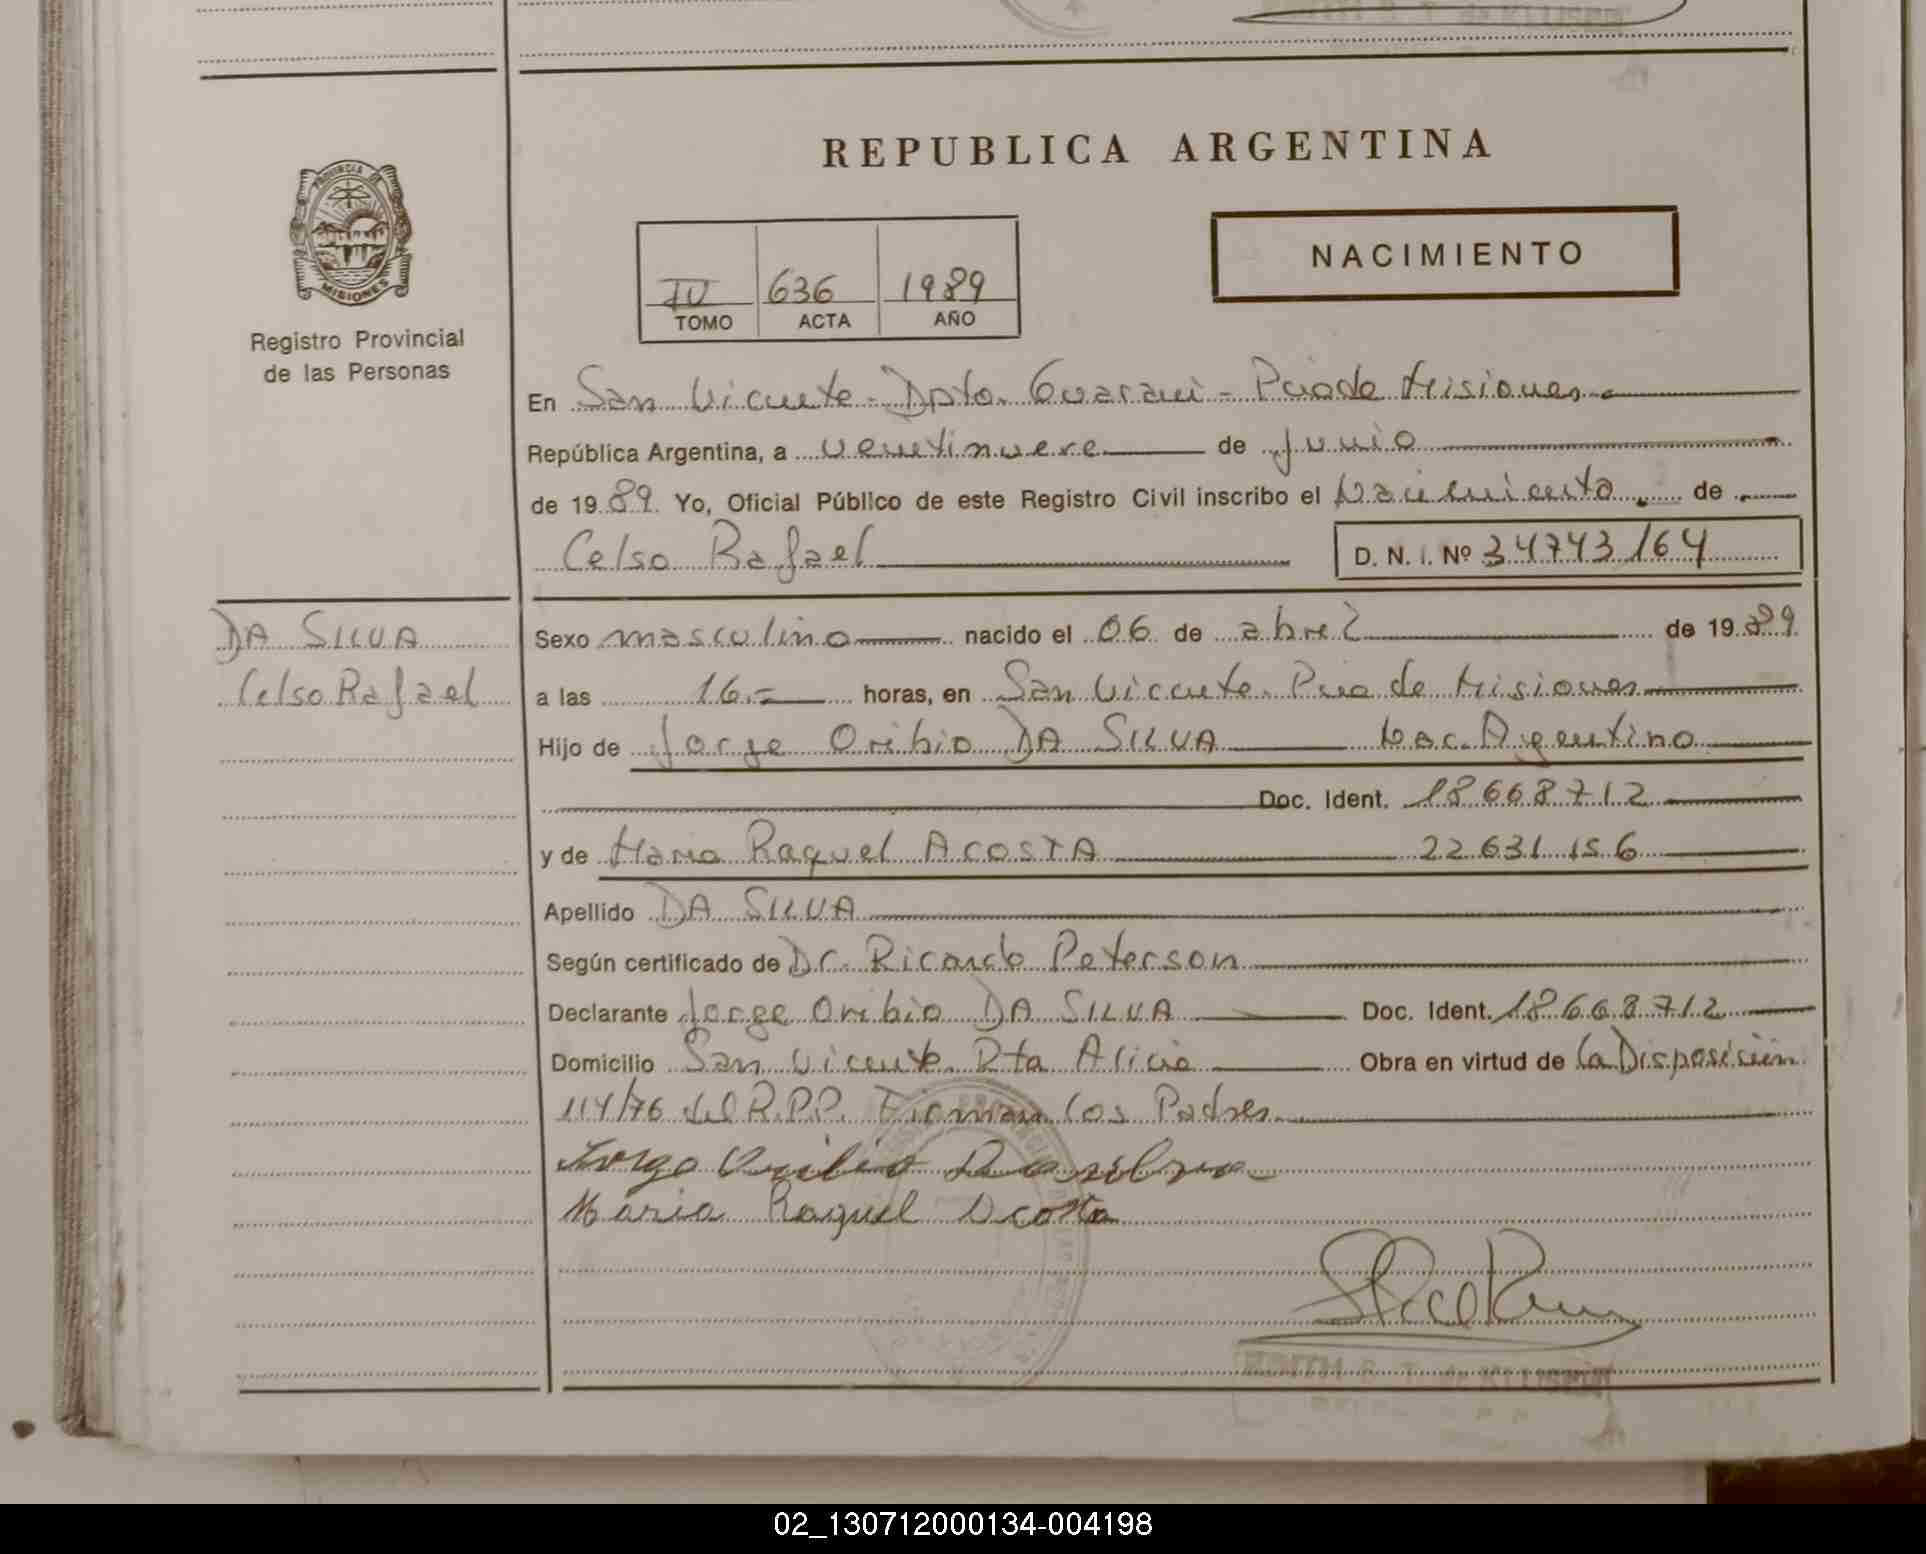 REPUBLICA ARGENTINA
NACIMIENTO
PROVINCIA DE
MISIONES
Registro Provincial
de las Personas
IV 636 1989
TOMO ACTA AÑO
En San Vicente - Dpto. Guarani - Pcia de Misiones
República Argentina, a veintinueve de junio
de 1989 Yo, Oficial Público de este Registro Civil inscribo el Nacimiento de
Celso Rafael D. N. I. Nº 34743164
DA SILVA
Celso Rafael
Sexo masculino nacido el 06 de abril de 1989
a las 16.= horas, en San Vicente. Pcia de Misiones
Hijo de Jorge Oribio DA SILVA Nac. Argentino
Doc. Ident. 18668712
y de Maria Raquel ACOSTA 22631156
Apellido DA SILVA
Según certificado de Dr. Ricardo Peterson
Declarante Jorge Oribio DA SILVA Doc. Ident. 18668712
Domicilio San Vicente. Pta Alicia Obra en virtud de la Disposición
114/76 del R.P.P. Firman los Padres
Jorge Da silva
Maria Raquel Acosta
02_130712000134-004198